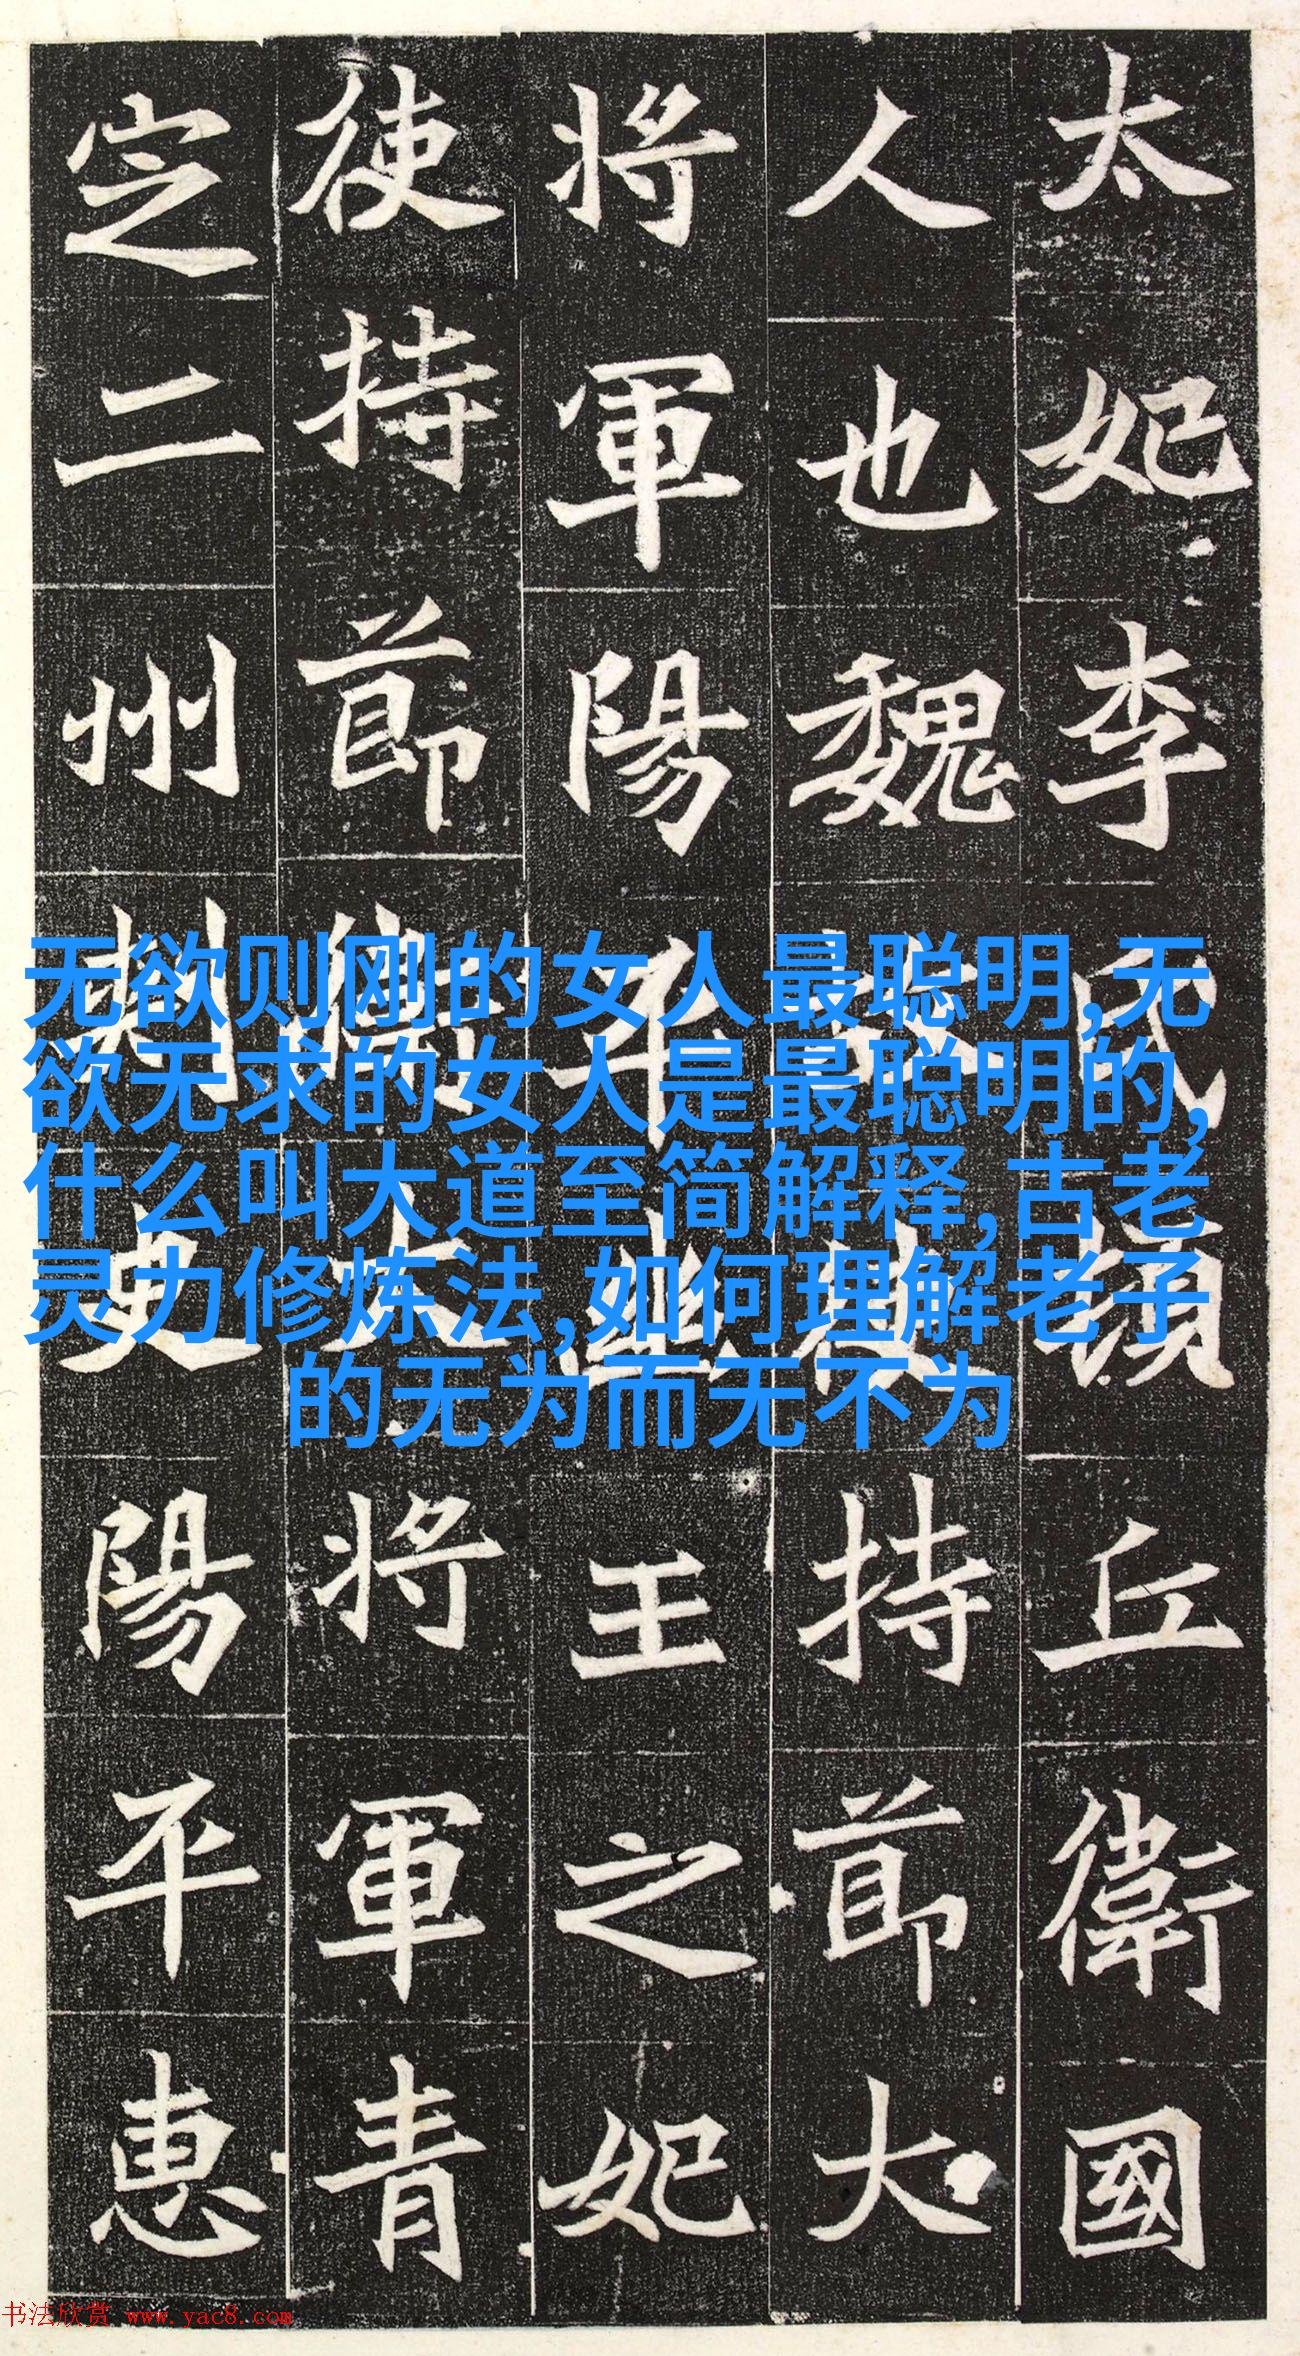 太妃李氏頓丘衛國
人也魏故使持節大
將軍陽平幽王之妃
使持節衛大將軍青
定二州刺史陽平惠
无欲则刚的女人最聪明,无
欲无求的女人是最聪明的,
什么叫大道至简解释,古老
灵力修炼法,如何理解老子
的无为而无不为
书法欣赏 www.yac8.com